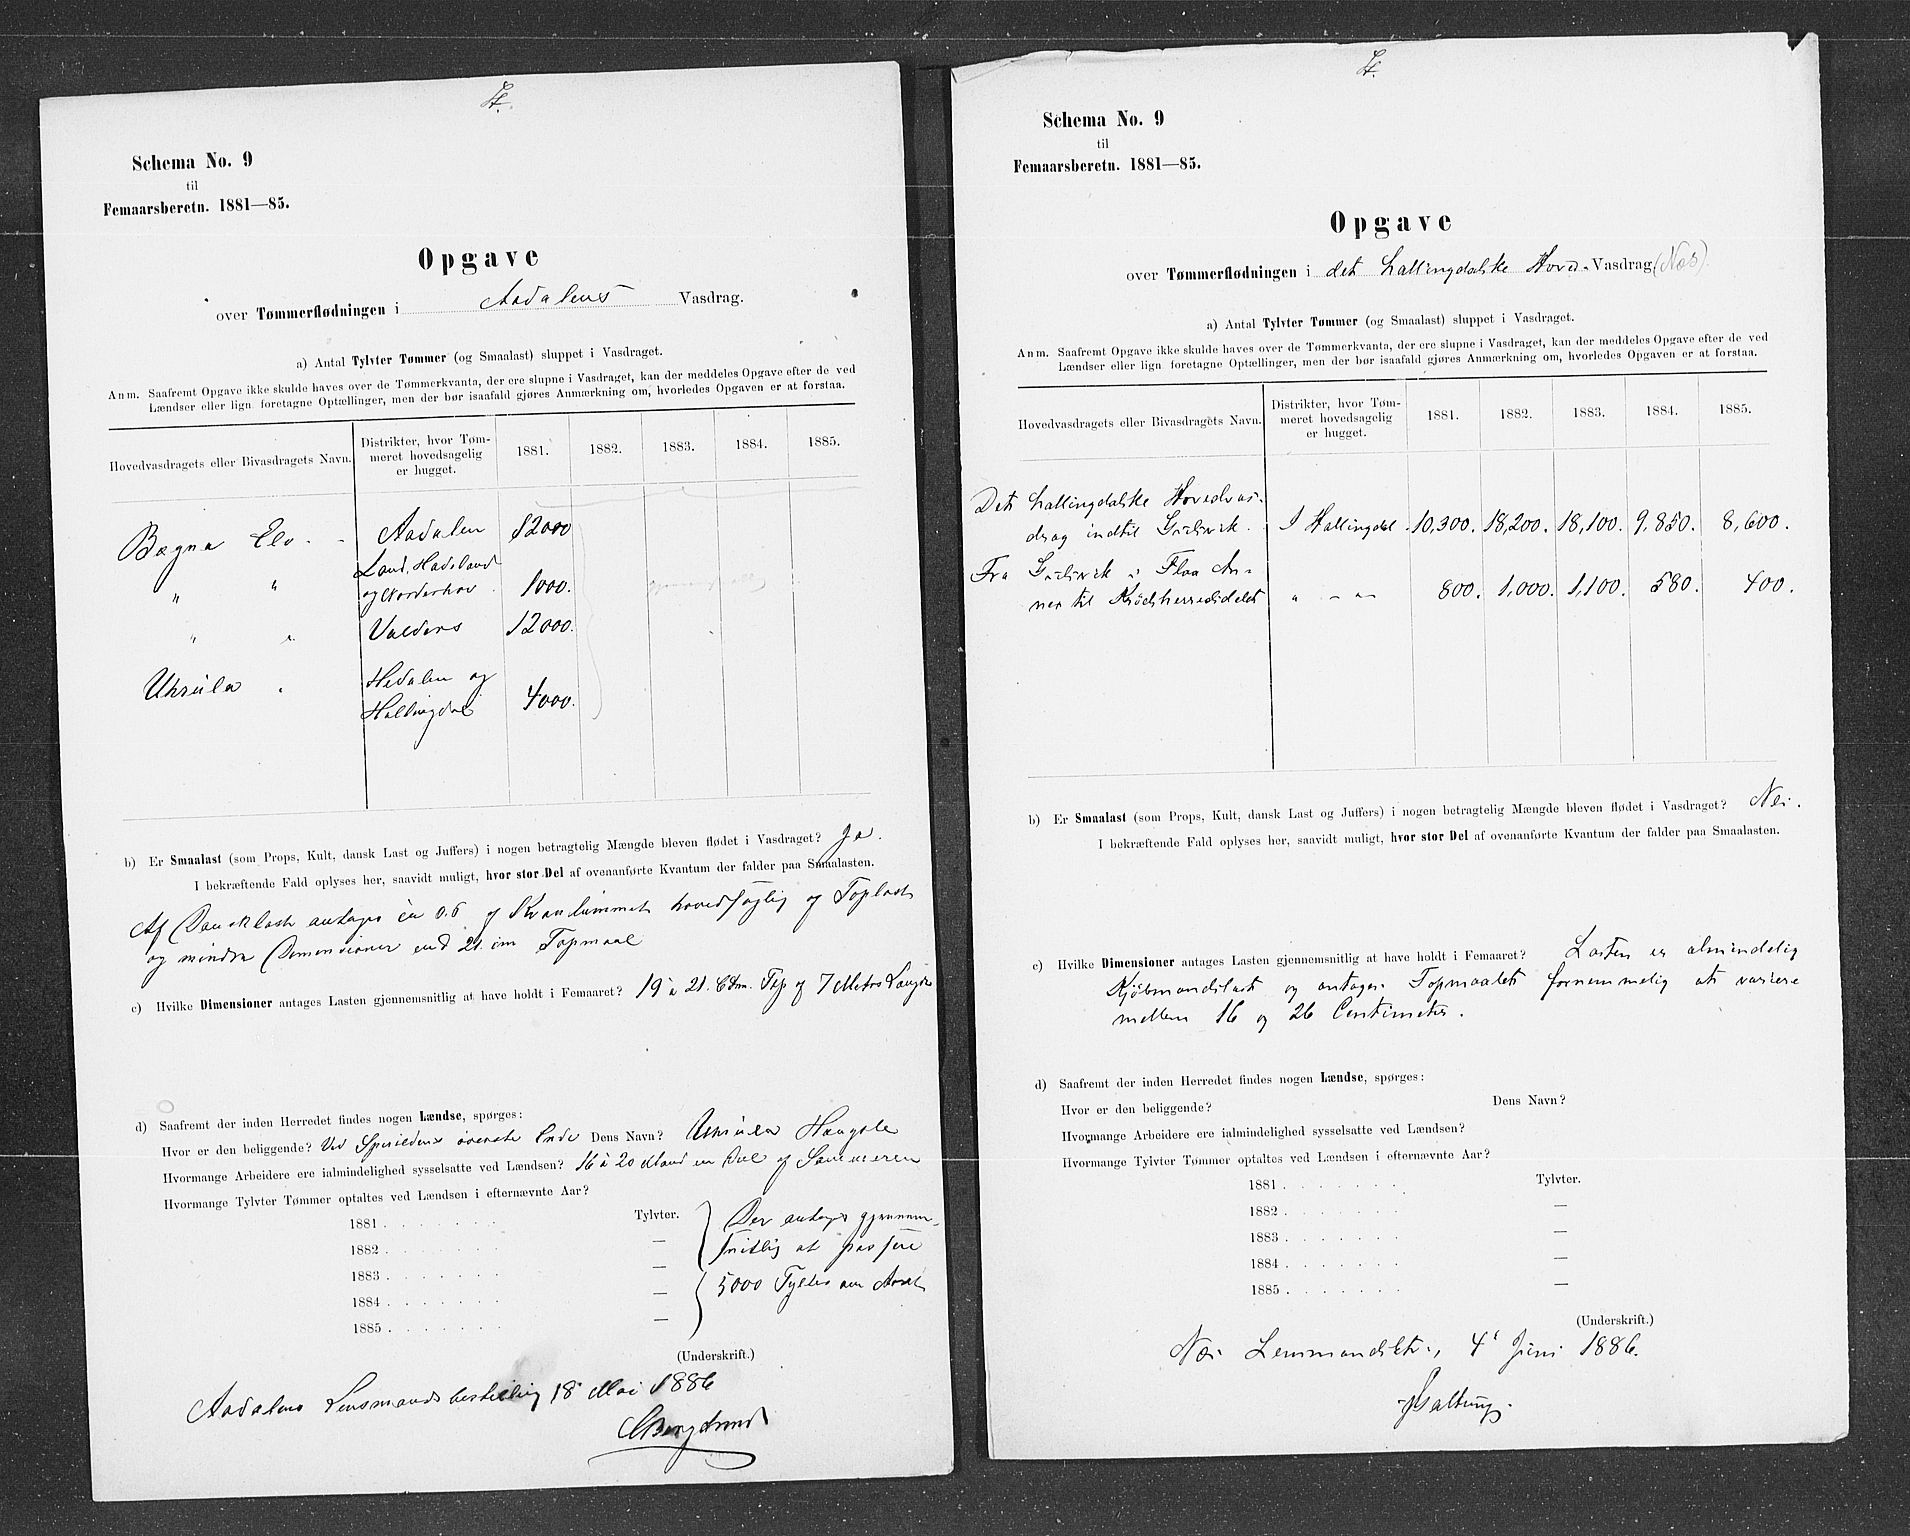 Schema No. 9
til
Femaarsberetn. 1881—85.
Opgave
over Tømmerflødningen i Aadalens Vasdrag.
a) Antal Tylvter Tømmer (og Smaalast) sluppet i Vasdraget.
Anm. Saafremt Opgave ikke skulde haves over de Tømmerkvanta, der ere slupne i Vasdraget, kan der meddeles Opgave efter de ved
Lændser eller lign foretagne Optællinger, men der bør isaafald gjøres Anmærkning om, hvorledes Opgaven er at forstaa.
Hovedvasdragets eller Bivasdragets Navn. Distrikter, hvor Tøm- 1881. 1882. 1883. 1884. 1885.
meret hovedsagelig
er hugget.
Bægna Elv Aadalen 12000
" " Land, Hadeland
og Norderhov 1000.
" " Valders 12000.
Urula Hedalen og
Hallingdal 4000.
b) Er Smaalast (som Props, Kult, dansk Last og Juffers) i nogen betragtelig Mængde bleven flødet i Vasdraget? Ja.
I bekræftende Fald oplyses her, saavidt muligt, hvor stor Del af ovenanførte Kvantum der falder paa Smaalasten.
Af Dansklast antages 0.6 af Kvantummet hovedsaglig og Toplast
og mindre Dimensioner end 21 cm Topmaal
c) Hvilke Dimensioner antages Lasten gjennemsnitlig at have holdt i Femaaret? 19 à 21 Ctm. Top og 7 Metres Længde
d) Saafremt der inden Herredet findes nogen Lændse, spørges:
Hvor er den beliggende? Ved Sperildens øverste Ende Dens Navn? Urula Hængsle
Hvormange Arbeidere ere ialmindelighed sysselsatte ved Lændsen? 16 à 20 Mand en Del af Sommeren
Hvormange Tylvter Tømmer optaltes ved Lændsen i efternævnte Aar?
1881 . . . . . . . Tylvter. Der antages gjennem-
1882 . . . . . . . — snitlig at passere
1883 . . . . . . . — 5000 Tylter om Aaret
1884 . . . . . . . —
1885 . . . . . . . —
(Underskrift.)
Aadalens Lensmandsbestilling 18 Mai 1886
Schema No. 9
til
Femaarsberetn. 1881—85.
Opgave
over Tømmerflødningen i det hallingdalske Hoved-Vasdrag (Næs).
a) Antal Tylvter Tømmer (og Smaalast) sluppet i Vasdraget.
Anm. Saafremt Opgave ikke skulde haves over de Tømmerkvanta, der ere slupne i Vasdraget, kan der meddeles Opgave efter de ved
Lændser eller lign foretagne Optællinger, men der bør isaafald gjøres Anmærkning om, hvorledes Opgaven er at forstaa.
Hovedvasdragets eller Bivasdragets Navn. Distrikter, hvor Tøm- 1881. 1882. 1883. 1884. 1885.
meret hovedsagelig
er hugget.
Det hallingdalske Hovedvas-
drag indtil Gulsvik. I Hallingdal. 10,300. 18,200. 18,100. 9,850. 8,600.
Fra Gulsvik i Flaa An-
nex til Krødsherreddelet " — " — 800. 1,000. 1,100. 580. 400.
b) Er Smaalast (som Props, Kult, dansk Last og Juffers) i nogen betragtelig Mængde bleven flødet i Vasdraget? Nei.
I bekræftende Fald oplyses her, saavidt muligt, hvor stor Del af ovenanførte Kvantum der falder paa Smaalasten.
c) Hvilke Dimensioner antages Lasten gjennemsnitlig at have holdt i Femaaret? Lasten er almindelig
Kjøbmandslast og antages Topmaalet fornemmelig at variere
mellem 16 og 26 Centimeter.
d) Saafremt der inden Herredet findes nogen Lændse, spørges:
Hvor er den beliggende? Dens Navn?
Hvormange Arbeidere ere ialmindelighed sysselsatte ved Lændsen?
Hvormange Tylvter Tømmer optaltes ved Lændsen i efternævnte Aar?
1881 . . . . . . . Tylvter.
1882 . . . . . . . —
1883 . . . . . . . —
1884 . . . . . . . —
1885 . . . . . . . —
(Underskrift.)
Næs Lensmandsktr., 4 Juni 1886.